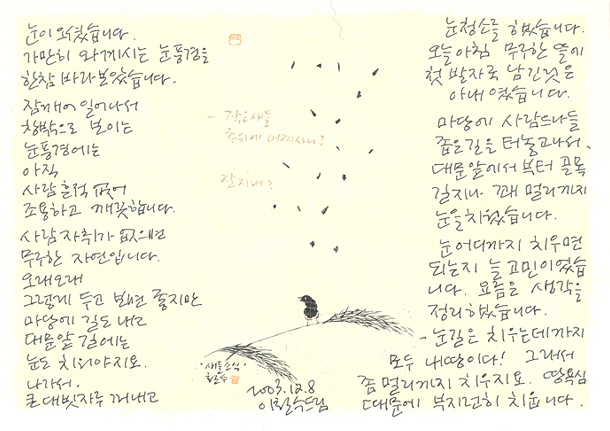 눈이 오셨습니다.
가만히 와 계시는 눈풍경을
한참 바라보았습니다.
잠깨어 일어나서
창밖으로 보이는
눈풍경에는
아직
사람 흔적 없어
조용하고 깨끗합니다.
사람자취가 없으면
무구한 자연입니다.
오래오래
그렇게 두고 보면 좋지만
마당에 길도 내고
대문앞 길에는
눈도 치워야지요.
나가서,
큰 대빗자루 꺼내고
눈청소를 하였습니다.
오늘아침 무구한 뜰에
첫 발자국 남긴것은
아내였습니다.
마당에 사람드나들
좁은길을 터놓고나서,
대문앞에서부터 골목
길지나 꽤 멀리까지
눈을 치웠습니다.
눈 어디까지 치우면
되는지 늘 고민이었습
니다. 요즘은 생각을
정리하였습니다.
- 눈길은 치우는데까지
모두 내땅이다! 그래서
좀 멀리까지 치우지요. 땅욕심
때문에 부지런히 치웁니다.
- 작은새들
추위에 어찌사나?
잘지내?
'새들소식'
2003.12.8
이철수드림